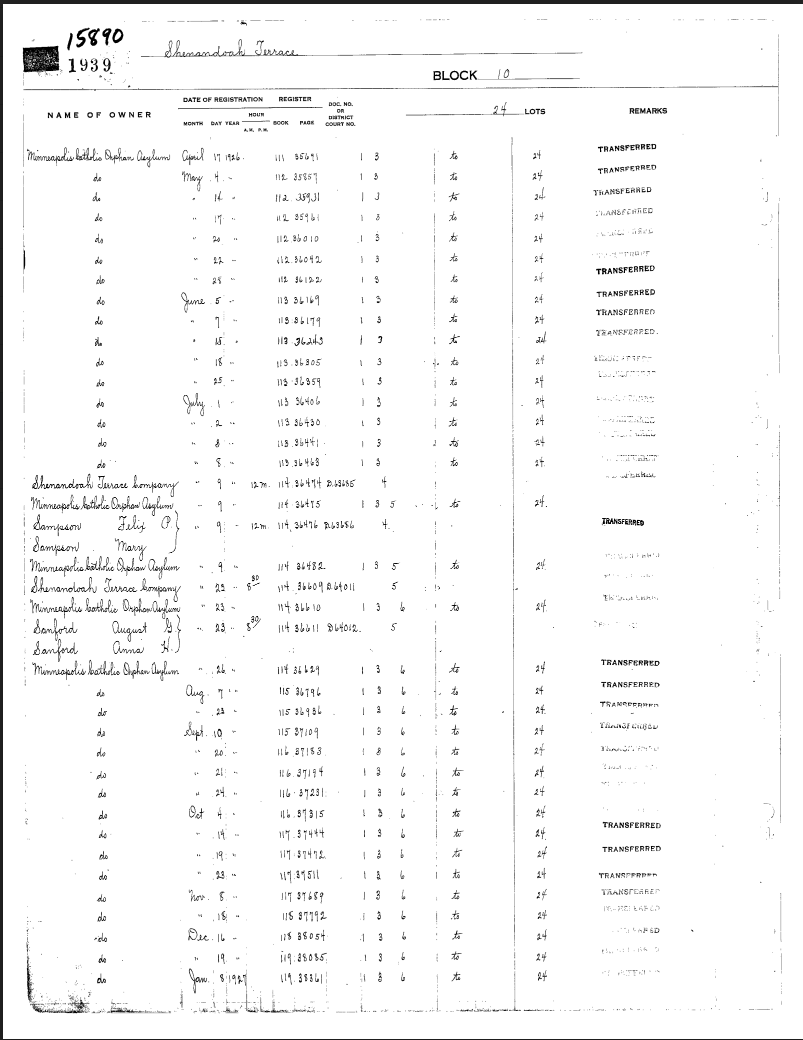 15890
1939
Shenandoah Terrace
BLOCK 10
NAME OF OWNER DATE OF REGISTRATION MONTH DAY YEAR HOUR A.M. P.M. REGISTER BOOK PAGE DOC. NO. OR DISTRICT COURT NO. 24 LOTS REMARKS
Minneapolis Catholic Orphan Asylum April 17 1926 111 35691 1 3 to 24 TRANSFERRED
do May 4 " 112 35857 1 3 to 24 TRANSFERRED
do " 14 " 112 35931 1 3 to 24 TRANSFERRED
do " 17 " 112 35961 1 3 to 24 TRANSFERRED
do " 20 " 112 36010 1 3 to 24
do " 22 " 112 36042 1 3 to 24
do " 28 " 112 36122 1 3 to 24 TRANSFERRED
do June 5 " 113 36169 1 3 to 24 TRANSFERRED
do " 7 " 113 36179 1 3 to 24 TRANSFERRED
do " 15 " 113 36243 1 3 to 24 TRANSFERRED
do " 18 " 113 36305 1 3 to 24
do " 25 " 113 36359 1 3 to 24
do July 1 " 113 36406 1 3 to 24
do " 2 " 113 36430 1 3 to 24
do " 8 " 113 36441 1 3 to 24
do " 8 " 113 36463 1 3 to 24
Shenandoah Terrace Company " 9 " 12 m. 114 36474 D.63685 4
Minneapolis Catholic Orphan Asylum " 9 " 114 36475 1 3 5 to 24
Sampson Felix P. " 9 " 12 m. 114 36476 D.63686 4 TRANSFERRED
Sampson Mary
Minneapolis Catholic Orphan Asylum " 9 " 114 36482 1 3 5 to 24
Shenandoah Terrace Company " 23 " 8 30 114 36609 D.64011 5
Minneapolis Catholic Orphan Asylum " 23 " 114 36610 1 3 6 to 24
Sanford August G. " 23 " 8 30 114 36611 D.64012 5
Sanford Anna H.
Minneapolis Catholic Orphan Asylum " 26 " 114 36629 1 3 6 to 24 TRANSFERRED
do Aug. 7 " 115 36796 1 3 6 to 24 TRANSFERRED
do " 23 " 115 36936 1 3 6 to 24 TRANSFERRED
do Sept. 10 " 115 37109 1 3 6 to 24 TRANSFERRED
do " 20 " 116 37183 1 3 6 to 24 TRANSFERRED
do " 21 " 116 37194 1 3 6 to 24
do " 24 " 116 37231 1 3 6 to 24
do Oct 4 " 116 37315 1 3 6 to 24
do " 19 " 117 37444 1 3 6 to 24 TRANSFERRED
do " 19 " 117 37472 1 3 6 to 24 TRANSFERRED
do " 23 " 117 37511 1 3 6 to 24 TRANSFERRED
do Nov. 8 " 117 37689 1 3 6 to 24 TRANSFERRED
do " 18 " 118 37792 1 3 6 to 24
do Dec. 16 " 118 38054 1 3 6 to 24
do " 19 " 119 38085 1 3 6 to 24
do Jan. 8 1927 119 38361 1 3 6 to 24